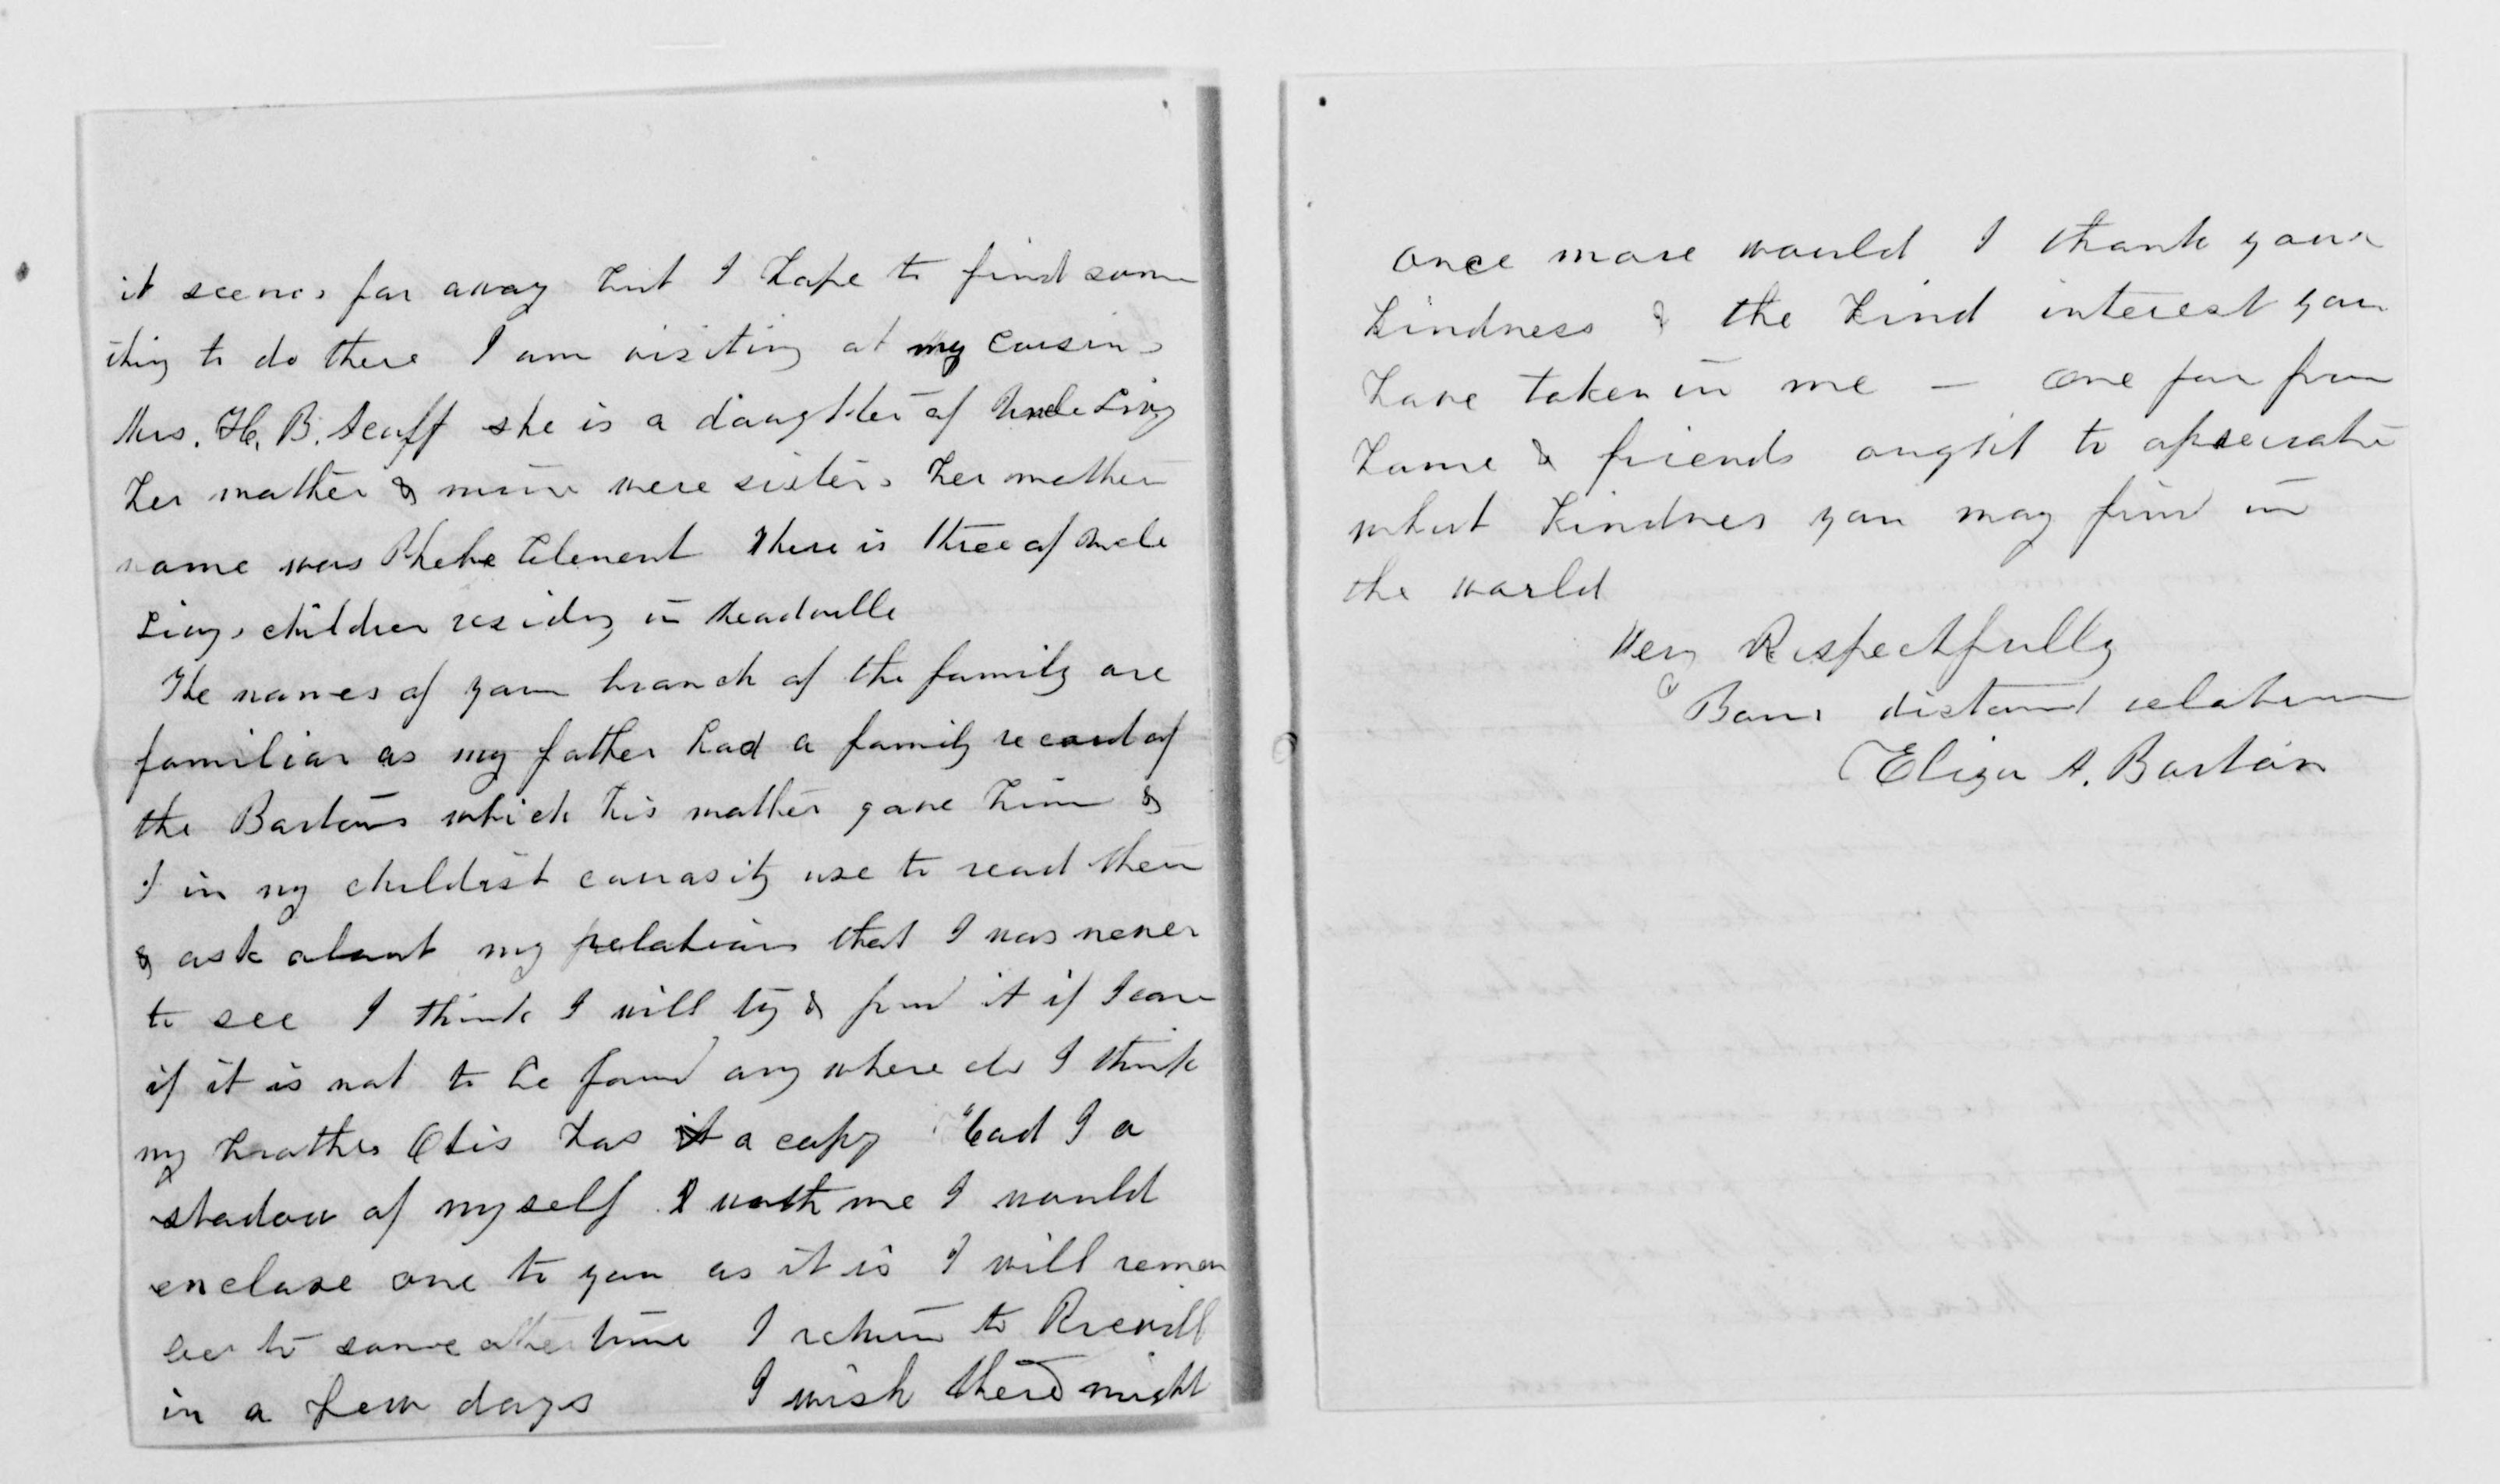 it seems far away but I hope to find som
thing to do there I am visiting at my cousins
Mrs. H. B. she is a daughter of Uncle
her mother & mine were sisters her mother
name was Phebe Clement There is three of Uncle
children residing in Meadville
The names of your branch of the family are
familiar as my father had a family record of
the Bartons which his mother gave him &
I in my childist couriasity use to read them
& ask about my relations that I was never
to see I think I will try & find it if I can
if it is not to be found any where els I think
my brother Otis has a copy Had I a
shadow of myself with me I would
enclose one to you as it is I will remem
ber to some other time I return to
in a few days I wish there might
once more would I thank your
kindness & the kind interest you
have taken in me — one far from
home & friends ought to
what kindnes you may find in
the world
Very Respectfully
distant relation
Eliza A. Barton